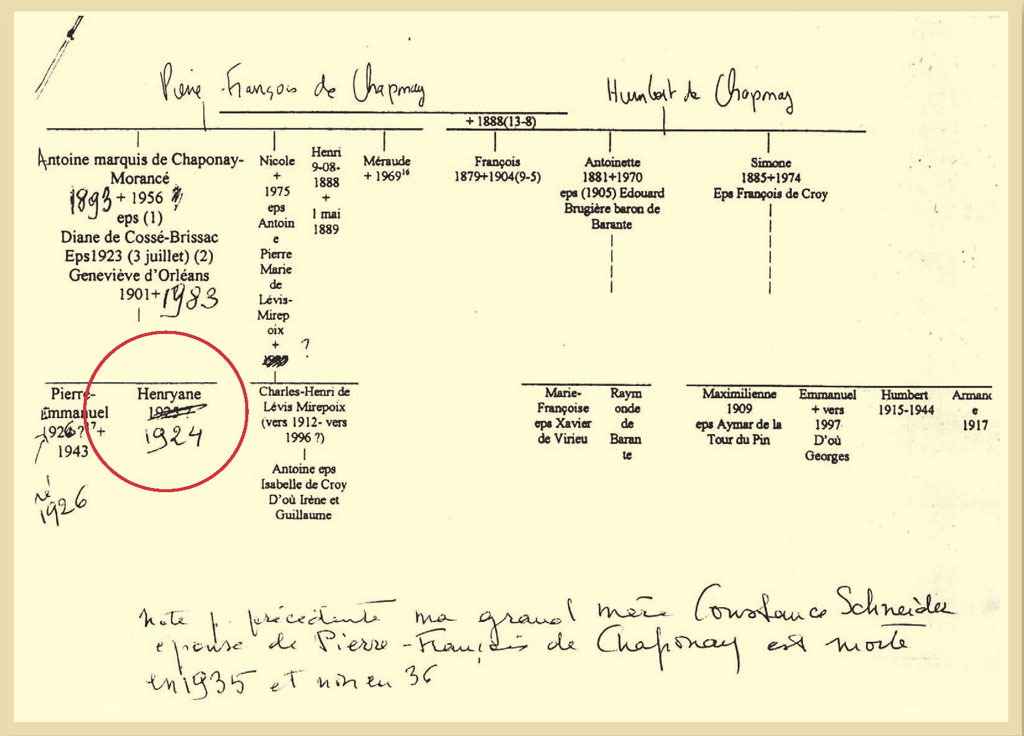 Pierre-François de Chaponay
Humbert de Chaponay
+ 1888(13-8)
Antoine marquis de Chaponay-
Morancé
1893 + 1956
eps (1)
Diane de Cossé-Brissac
Eps1923 (3 juillet) (2)
Geneviève d'Orléans
1901+ 1983
Nicole
+
1975
eps
Antoin
e
Pierre
Marie
de
Lévis-
Mirep
oix
+ ?
Henri
9-08-
1888
+
1 mai
1889
Méraude
+ 1969¹⁶
François
1879+1904(9-5)
Antoinette
1881+1970
eps (1905) Edouard
Brugière baron de
Barante
Simone
1885+1974
Eps François de Croy
Pierre-
Emmanuel
1926 ?¹⁷+
1943
né
1926
Henryane
1925 ?
1924
Charles-Henri de
Lévis Mirepoix
(vers 1912- vers
1996 ?)
Antoine eps
Isabelle de Croy
D'où Irène et
Guillaume
Marie-
Françoise
eps Xavier
de Virieu
Raym
onde
de
Baran
te
Maximilienne
1909
eps Aymar de la
Tour du Pin
Emmanuel
+ vers
1997
D'où
Georges
Humbert
1915-1944
Armanc
e
1917
Note p. précédente ma grand mère Constance Schneider
épouse de Pierre-François de Chaponay est morte
en 1935 et non en 36